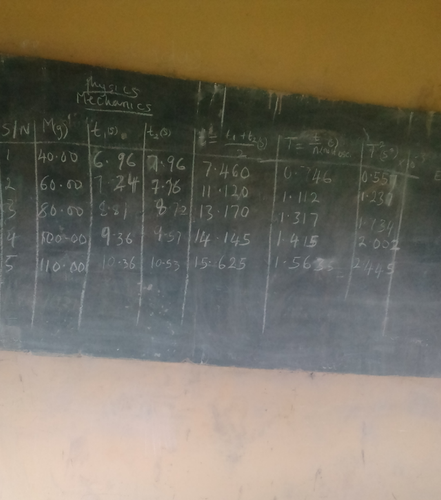 Physics
Mechanics
S/N M(g) t₁(s) t₂(s) t = t₁+t₂(s) T = T²(s²)
1 40.00 6.96 7.96 7.460 0.746 0.557
2 60.00 7.24 7.96 11.120 1.112 1.236
3 80.00 8.81 8.72 13.170 1.317 1.734
4 100.00 9.36 9.57 14.145 1.415 2.002
5 110.00 10.36 10.53 15.625 2.445